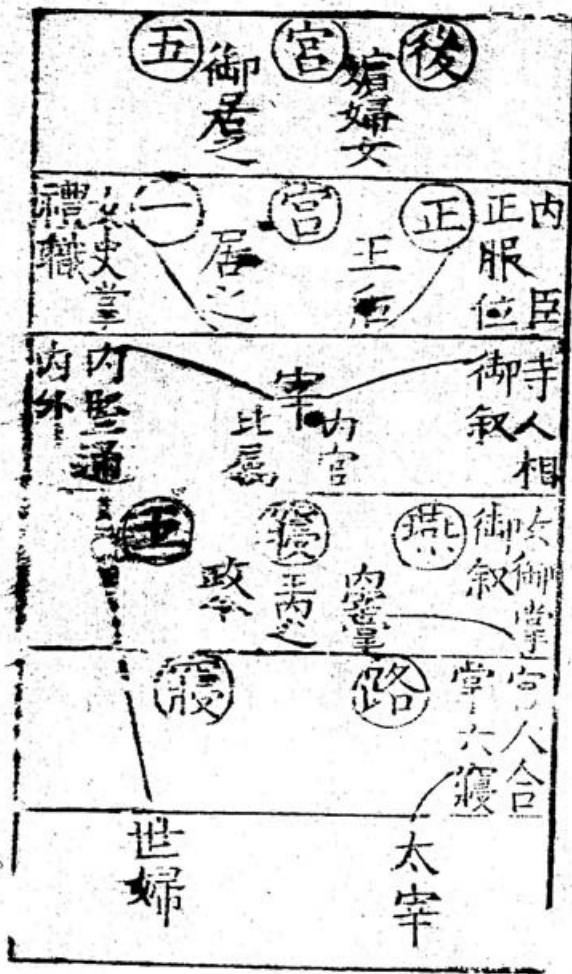 後宮五
嬪婦女
御居之
內臣
正服位
正宮一
王后
居之
女史掌
禮職
寺人相
御叙
宰
內官
比属
內豎通
內外
女御掌
御叙
燕寢五
王內之
政令
宮人合
掌六寢
路寢
太宰
世婦